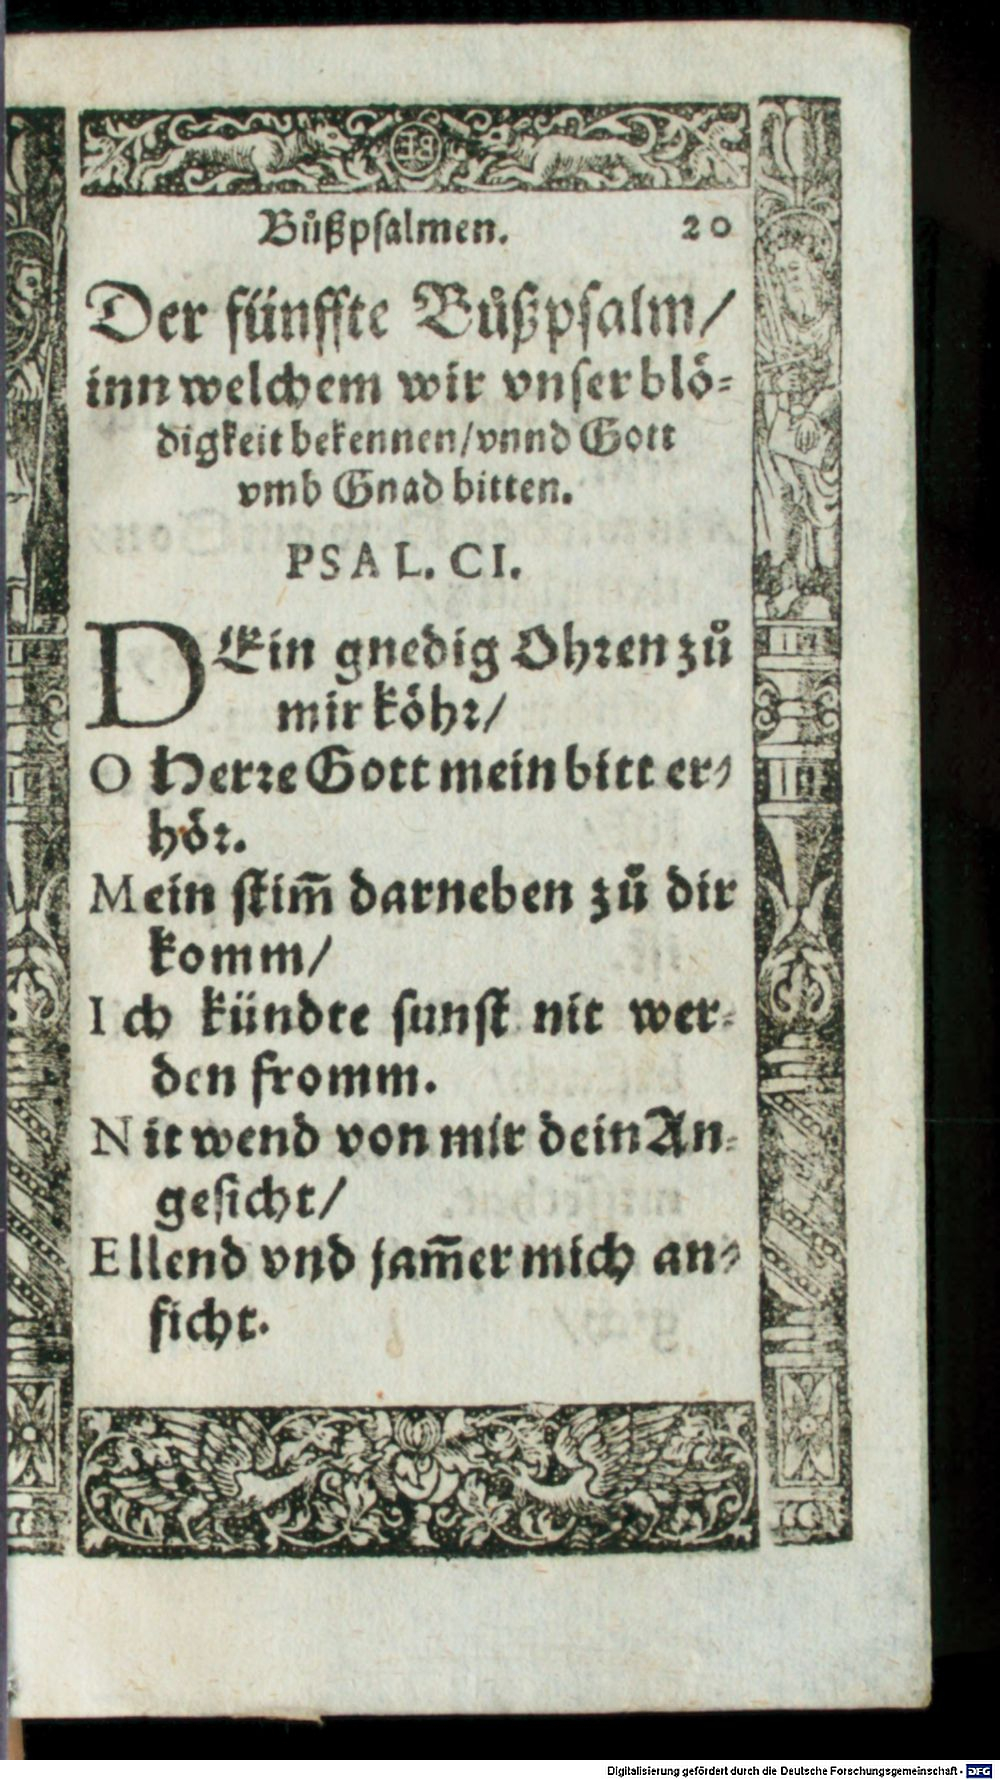 Bůßpſalmen. 20
Der fünffte Bůßpſalm/
inn welchem wir vnſer blö-
digkeit bekennen/vnnd Gott
vmb Gnad bitten.
PSAL. CI.
DEin gnedig Ohꝛen zů
mir köhꝛ/
O Herꝛe Gott mein bitt er-
höꝛ.
Mein ſtim̃ darneben zů dir
komm/
Ich kündte ſunſt nit wer-
den fromm.
Nit wend von mir dein An-
geſicht/
Ellend vnd jam̃er mich an-
ficht.
Digitalisierung gefördert durch die Deutsche Forschungsgemeinschaft - DFG